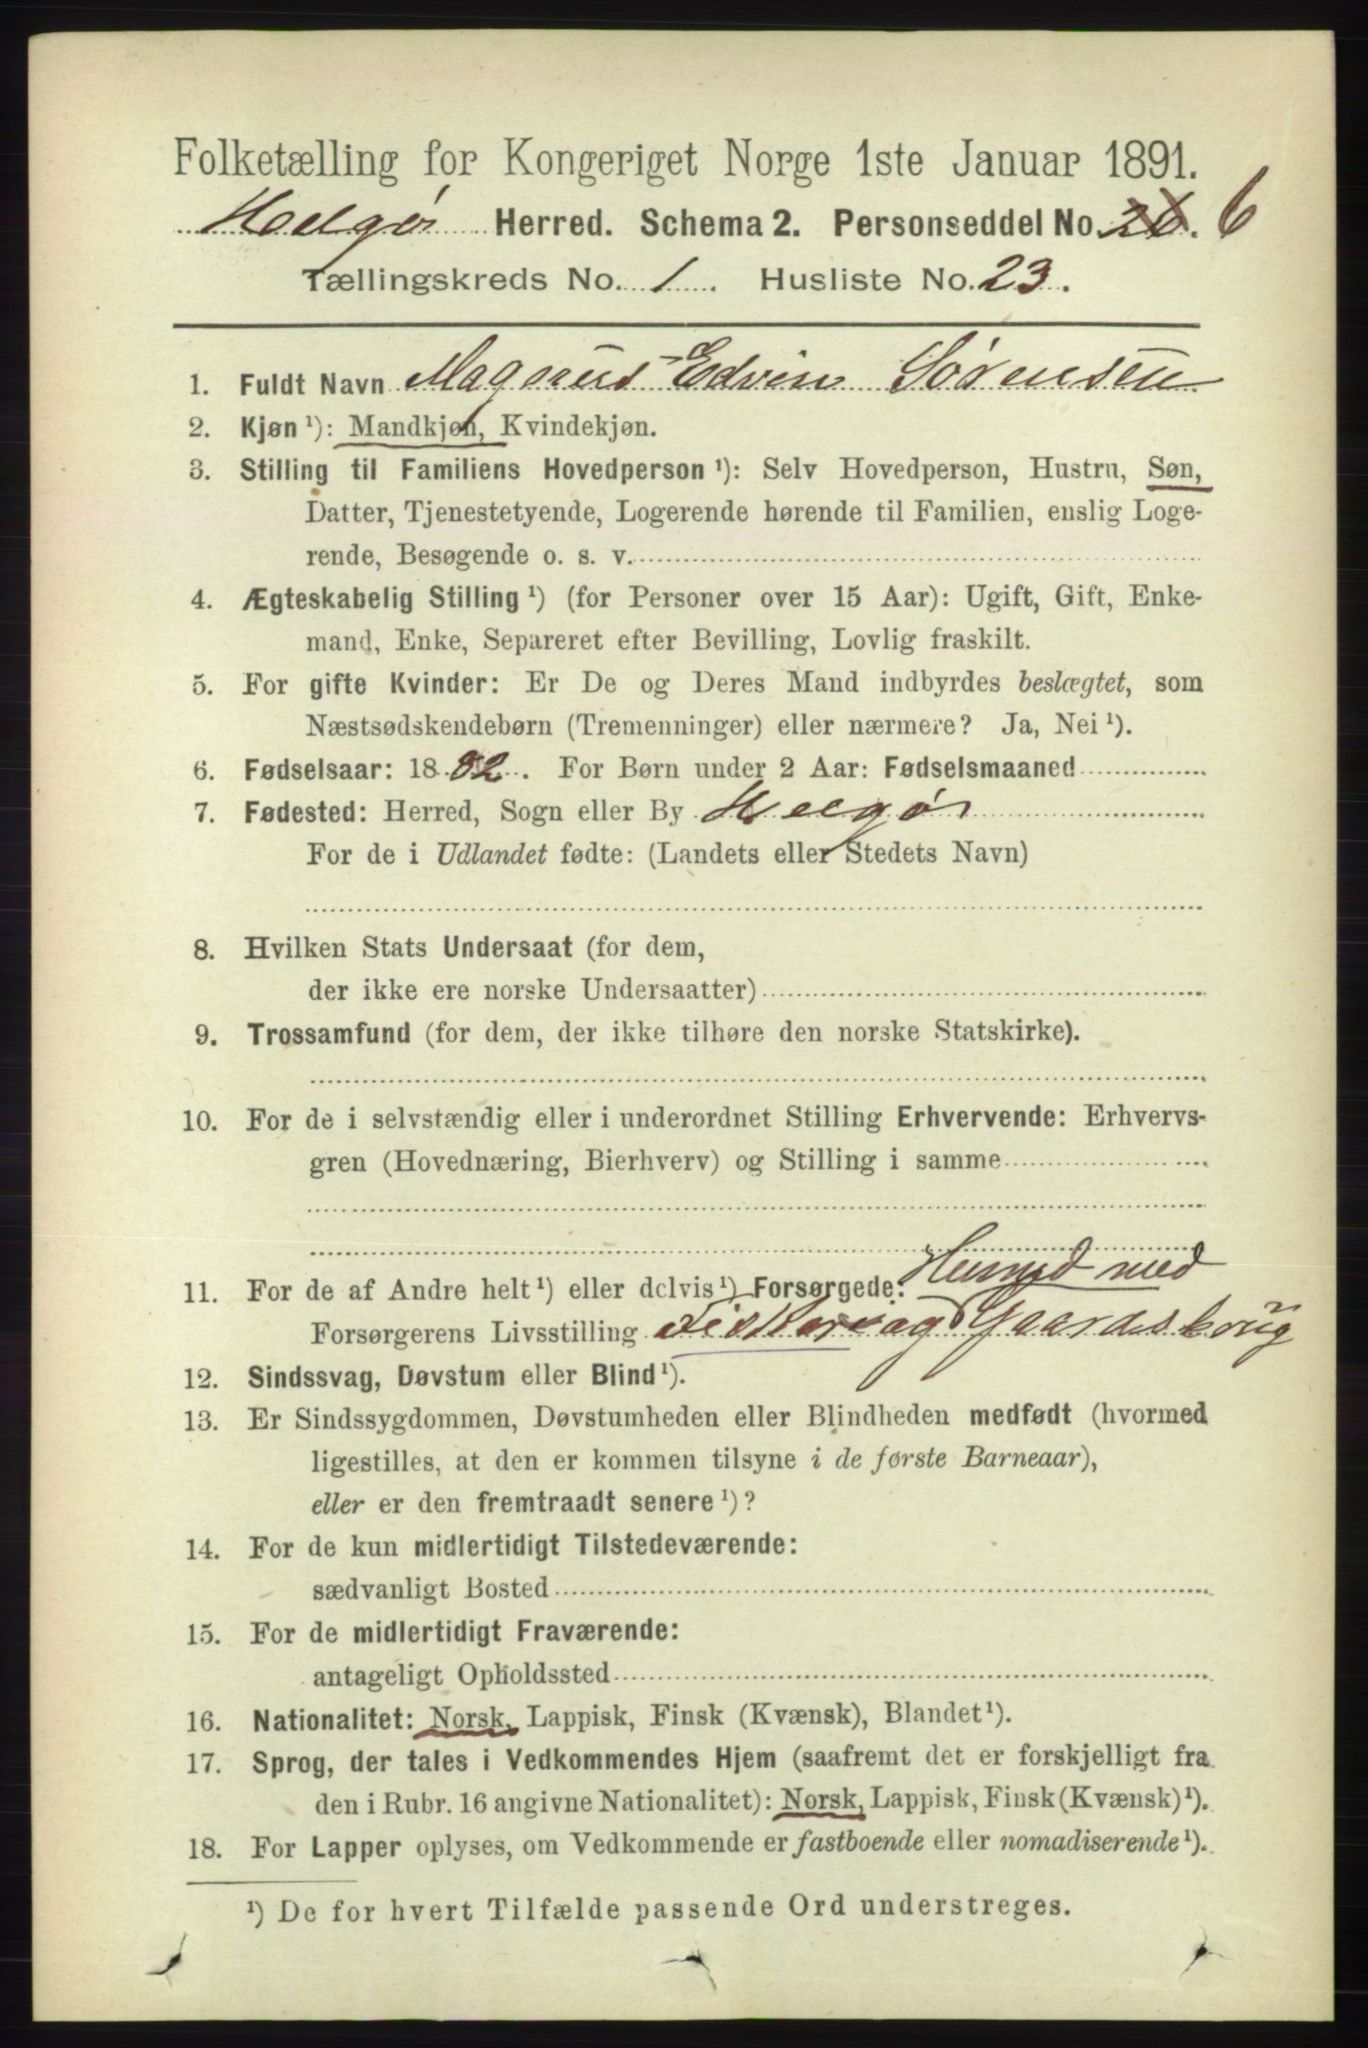 Folketælling for Kongeriget Norge 1ste Januar 1891.
Helgø Herred. Schema 2. Personseddel No. 26. 6
Tællingskreds No. 1. Husliste No. 23.
1. Fuldt Navn Magnus Edvin Sørensen
2. Kjøn ¹): Mandkjøn, Kvindekjøn.
3. Stilling til Familiens Hovedperson ¹): Selv Hovedperson, Hustru, Søn,
Datter, Tjenestetyende, Logerende hørende til Familien, enslig Loge-
rende, Besøgende o. s. v.
4. Ægteskabelig Stilling ¹) (for Personer over 15 Aar): Ugift, Gift, Enke-
mand, Enke, Separeret efter Bevilling, Lovlig fraskilt.
5. For gifte Kvinder: Er De og Deres Mand indbyrdes beslægtet, som
Næstsødskendebørn (Tremenninger) eller nærmere? Ja, Nei ¹).
6. Fødselsaar: 1882. For Børn under 2 Aar: Fødselsmaaned
7. Fødested: Herred, Sogn eller By Helgø
For de i Udlandet fødte: (Landets eller Stedets Navn)
8. Hvilken Stats Undersaat (for dem,
der ikke ere norske Undersaatter)
9. Trossamfund (for dem, der ikke tilhøre den norske Statskirke).
10. For de i selvstændig eller i underordnet Stilling Erhvervende: Erhvervs-
gren (Hovednæring, Bierhverv) og Stilling i samme
11. For de af Andre helt ¹) eller delvis ¹) Forsørgede: med
Forsørgerens Livsstilling Fisker og Gaardsbrug
12. Sindssvag, Døvstum eller Blind ¹).
13. Er Sindssygdommen, Døvstumheden eller Blindheden medfødt (hvormed
ligestilles, at den er kommen tilsyne i de første Barneaar),
eller er den fremtraadt senere ¹)?
14. For de kun midlertidigt Tilstedeværende:
sædvanligt Bosted
15. For de midlertidigt Fraværende:
antageligt Opholdssted
16. Nationalitet: Norsk, Lappisk, Finsk (Kvænsk), Blandet ¹).
17. Sprog, der tales i Vedkommendes Hjem (saafremt det er forskjelligt fra
den i Rubr. 16 angivne Nationalitet): Norsk, Lappisk, Finsk (Kvænsk) ¹).
18. For Lapper oplyses, om Vedkommende er fastboende eller nomadiserende ¹).
¹) De for hvert Tilfælde passende Ord understreges.